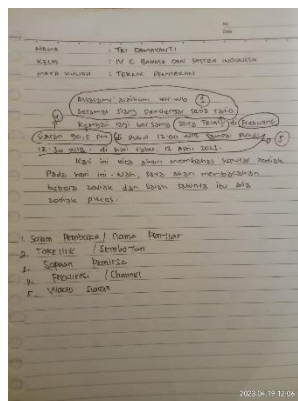 No.
Date.
NAMA : TRI DAMAYANTI
KELAS : IV C BAHASA DAN SASTRA INDONESIA
MATA KULIAH : TEKNIK PENYIARAN
Assalamu alaikum wr. wb 1
Selamat siang pendengar setia radio
4 Kembali lagi bersama saya TRIMY di Frekuensi
siaran 90.5 FM di pukul 12.00 WIB sampai pukul 5
12.30 WIB. di hari rabu, 12 April 2023.
Hari ini kita akan membahas seputar zodiak
Pada hari ini. Nah, saya akan membacakan
zodiak dan salah satunya itu ada
zodiak pisces.
1. Salam Pembuka / nama
2. Take line /
3. Sapaan
4. Frekuensi / Channel
5. Waktu siaran
2023.04.19 12:06